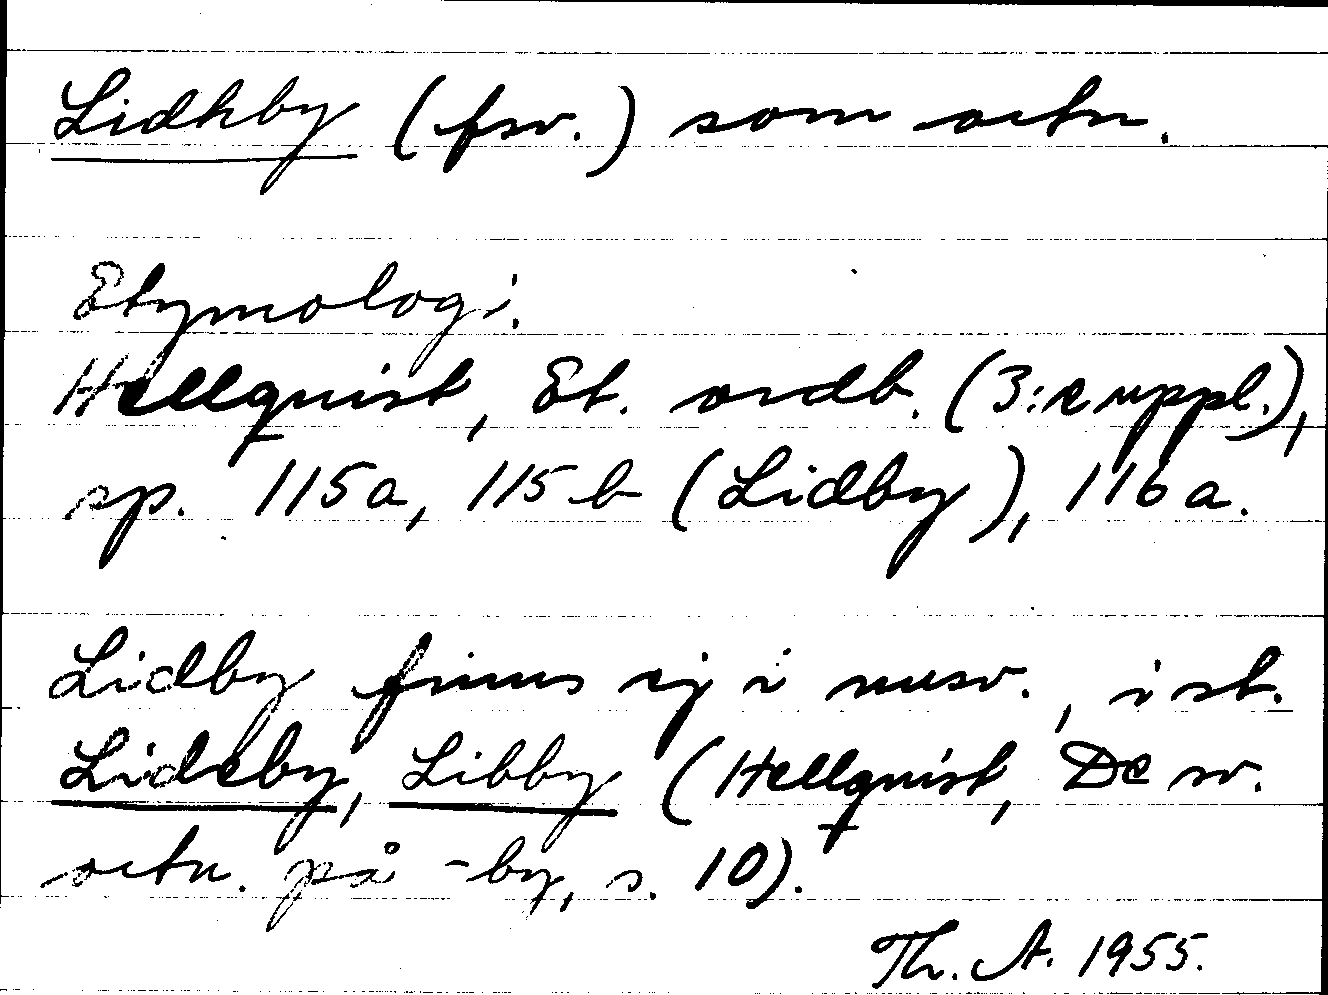 Lidhby (fsv.) som ortn.
Etymologi.
Hellquist, Et. ordb. (3:e uppl.),
sp. 115a, 115b (Lidby), 116a.
Lidby finns ej i nusv., i st.
Lideby, Libby (Hellquist, De sv.
ortn. på -by, s. 10).
Th. A. 1955.